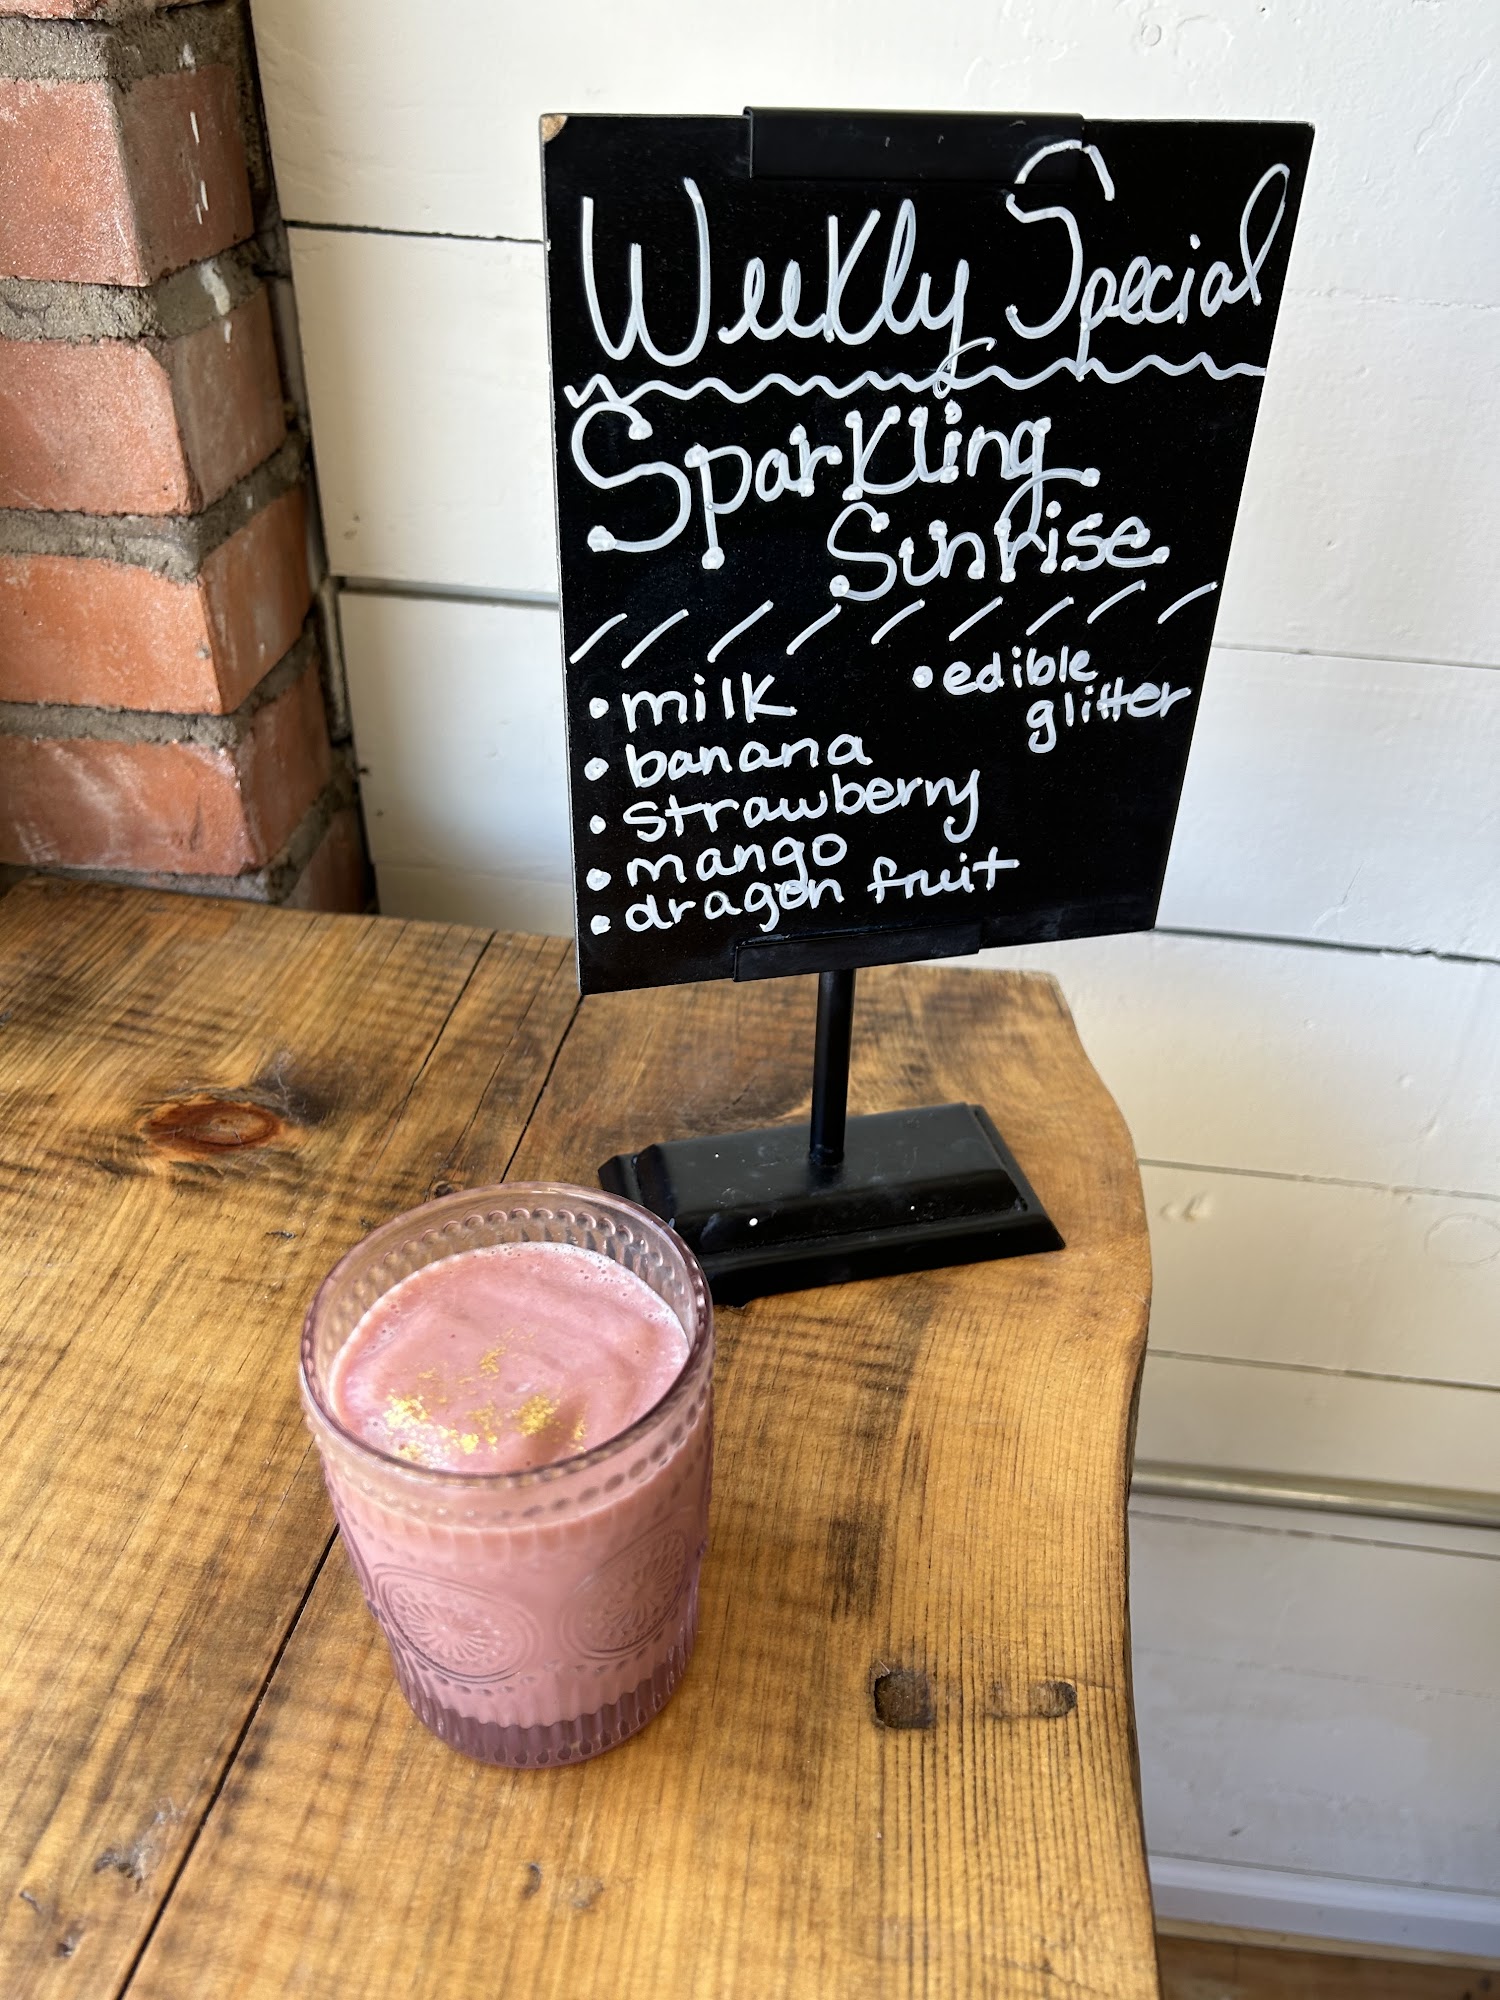 Weekly Special
Sparkling
Sunrise
• milk
• banana
• strawberry
• mango
• dragon fruit
• edible
glitter